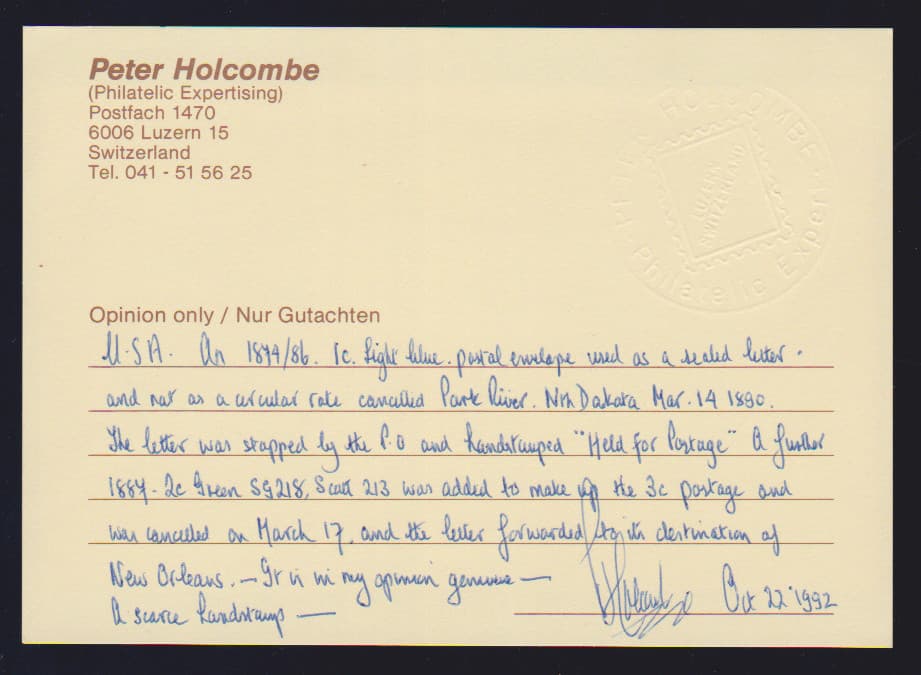 Peter Holcombe
(Philatelic Expertising)
Postfach 1470
6006 Luzern 15
Switzerland
Tel. 041 - 51 56 25
HOLCOMBE
Philatelic Expert
SWITZERLAND
Opinion only / Nur Gutachten
U.S.A. An 1874/86. 1c. light blue. postal envelope used as a sealed letter.
and not as a circular rate cancelled Park River. Nth Dakota Mar. 14 1890.
The letter was stopped by the P.O and handstamped "Held for Postage" A further
1887- 2c Green SG218, Scott 213 was added to make up the 3c postage and
was cancelled on March 17. and the letter forwarded to its destination of
New Orleans. — It is in my opinion genuine —
A scarce handstamp —
Oct 22 1992